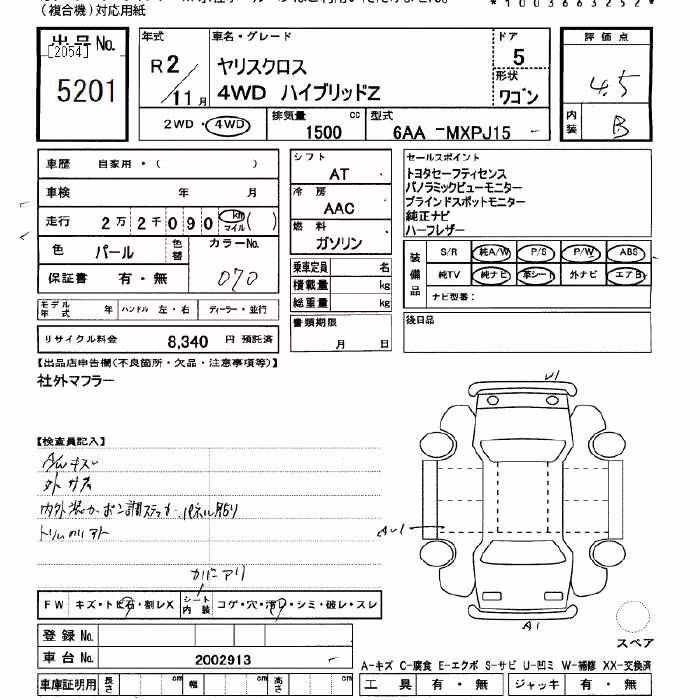 (複合機)対応用紙
*1003663252*
出品No.
[2054]
5201
年式
R2/11月
車名・グレード
ヤリスクロス
4WD ハイブリッドZ
ドア
5
形状
ワゴン
2WD・4WD
排気量
1500 cc
型式
6AA -MXPJ15 -
評価点
4.5
内装
B
車歴 自家用・( )
車検 年 月
走行 2万2千090 km マイル( )
色 パール 色替
カラーNo.
070
保証書 有・無
モデル年式 年 ハンドル 左・右 ディーラー・並行
リサイクル料金 8,340 円 預託済
シフト
AT
冷房
AAC
燃料
ガソリン
乗車定員 名
積載量 kg
総重量 kg
書類期限
月 日
セールスポイント
トヨタセーフティセンス
パノラミックビューモニター
ブラインドスポットモニター
純正ナビ
ハーフレザー
装備品
S/R 純A/W P/S P/W ABS
純TV 純ナビ 革シート 外ナビ エアB
ナビ型番:
後日品
【出品店申告欄(不良箇所・欠品・注意事項等)】
社外マフラー
【検査員記入】
A/Wキズ
外サス
内外装カーボン調ステッカー、パネル貼り
カバーアリ
FW キズ・トビ石・割レX
シート内装 コゲ・穴・汚レ・シミ・破レ・スレ
登録No.
車台No. 2002913
車庫証明用 長さ cm 幅 cm 高さ cm
A1
スペア
A-キズ C-腐食 E-エクボ S-サビ U-凹ミ W-補修 XX-交換済
工具 有・無 ジャッキ 有・無